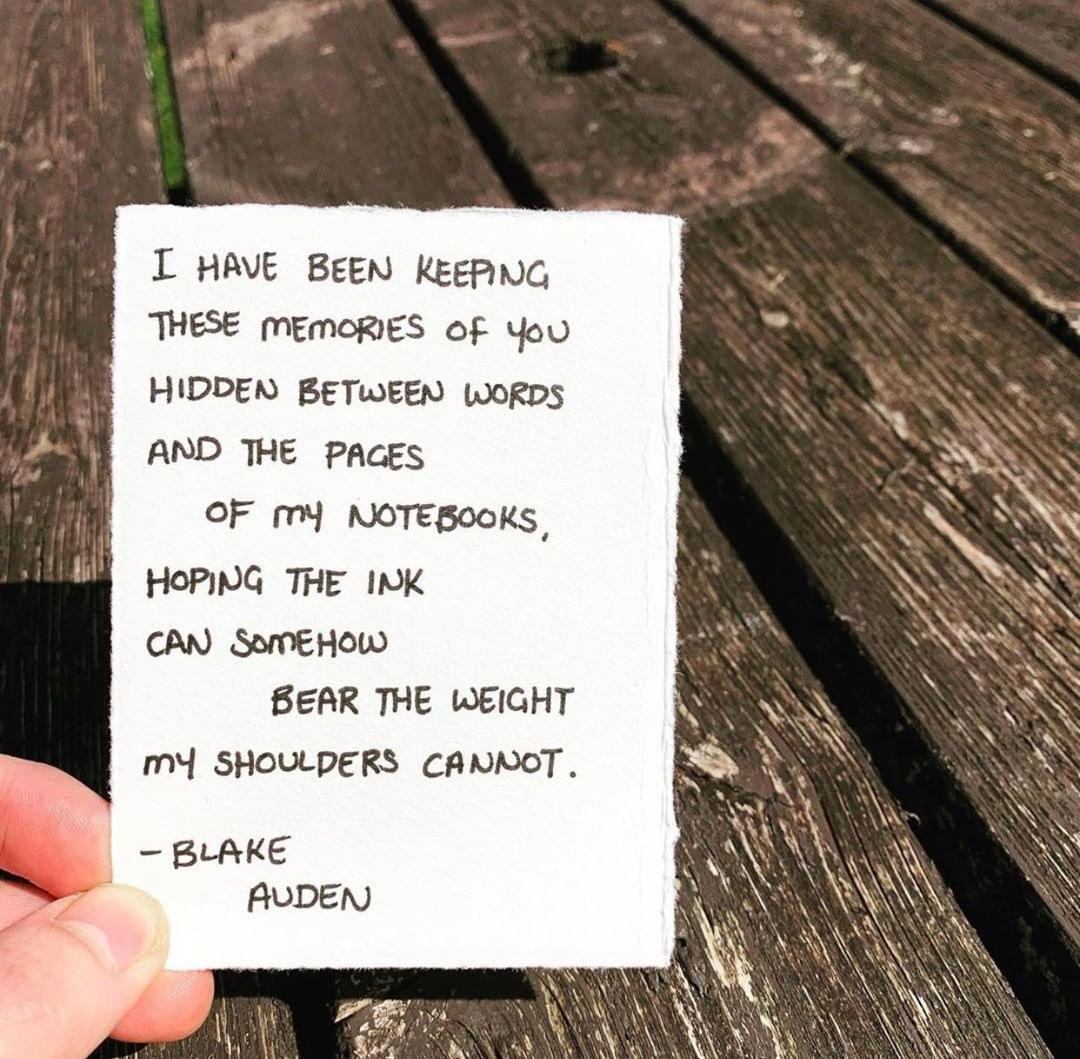 I HAVE BEEN KEEPING
THESE MEMORIES OF YOU
HIDDEN BETWEEN WORDS
AND THE PAGES
OF MY NOTEBOOKS,
HOPING THE INK
CAN SOMEHOW
BEAR THE WEIGHT
MY SHOULDERS CANNOT.
- BLAKE
AUDEN